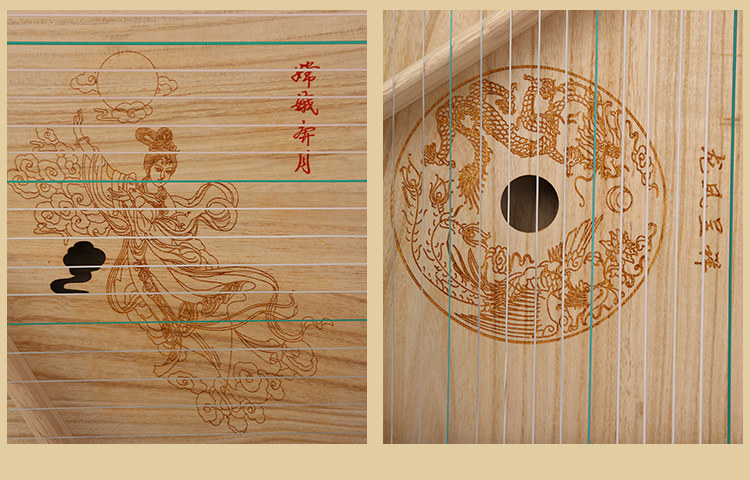 嫦娥奔月
龙凤呈祥